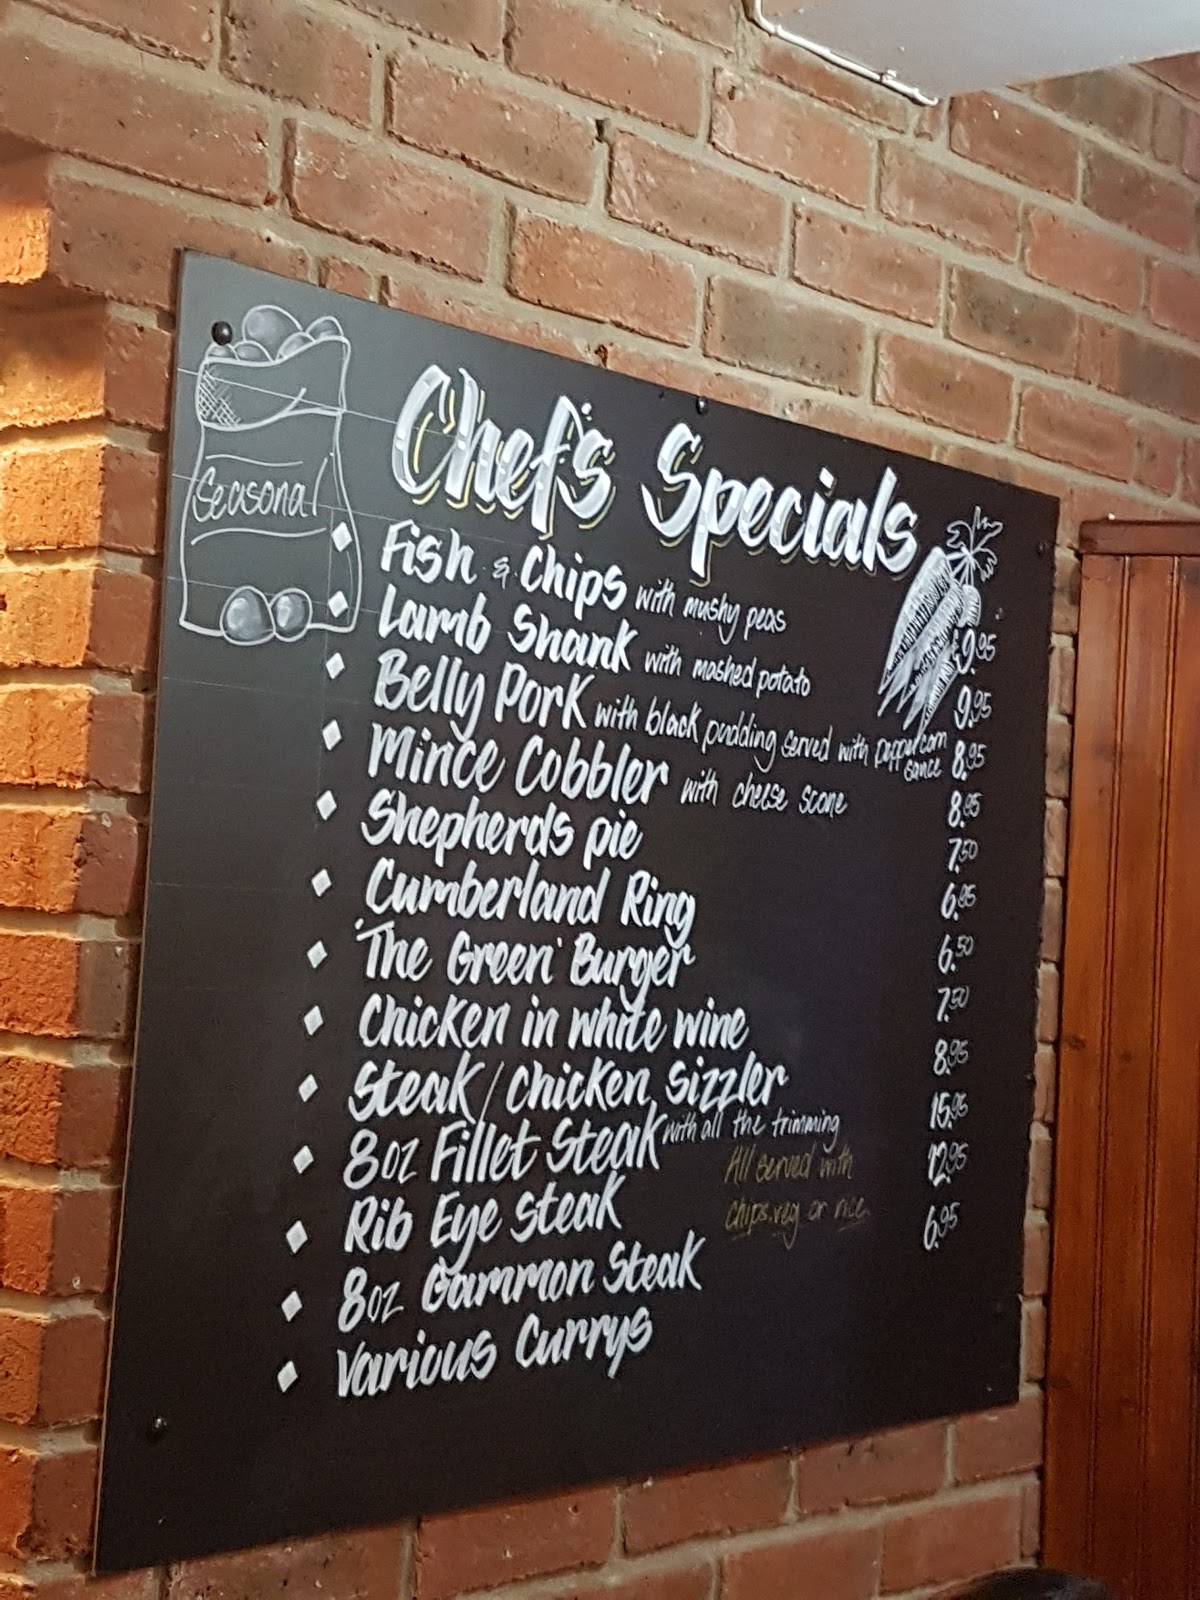 Seasonal
Chef's Specials
Fish & Chips with mushy peas £9.95
Lamb Shank with mashed potato 9.95
Belly Pork with black pudding served with peppercorn sauce 8.95
Mince Cobbler with cheese scone 8.95
Shepherds pie 7.50
Cumberland Ring 6.95
'The Green' Burger 6.50
Chicken in white wine 7.50
Steak/Chicken Sizzler 8.95
8oz Fillet Steak with all the trimming 15.95
Rib Eye Steak 12.95
8oz Gammon Steak 6.95
Various Currys
All served with
chips.veg or rice